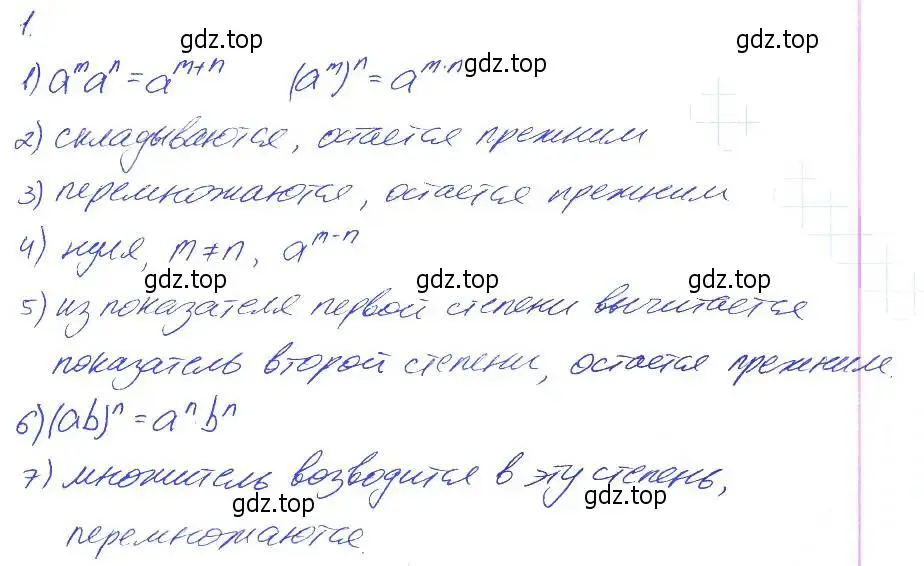 1.
gdz.top gdz.top
1) aᵐaⁿ = aᵐ⁺ⁿ (aᵐ)ⁿ = aᵐ·ⁿ gdz.top
2) складываются, остается прежним
gdz.top gdz.top
3) перемножаются, остается прежним
4) нуля, m ≠ n, aᵐ⁻ⁿ
gdz.top gdz.top gdz.top
5) из показателя первой степени вычитается
показатель второй степени, остается прежним.
gdz.top gdz.top
6) (ab)ⁿ = aⁿ·bⁿ
7) множитель возводится в эту степень,
gdz.top gdz.top gdz.top
перемножаются.